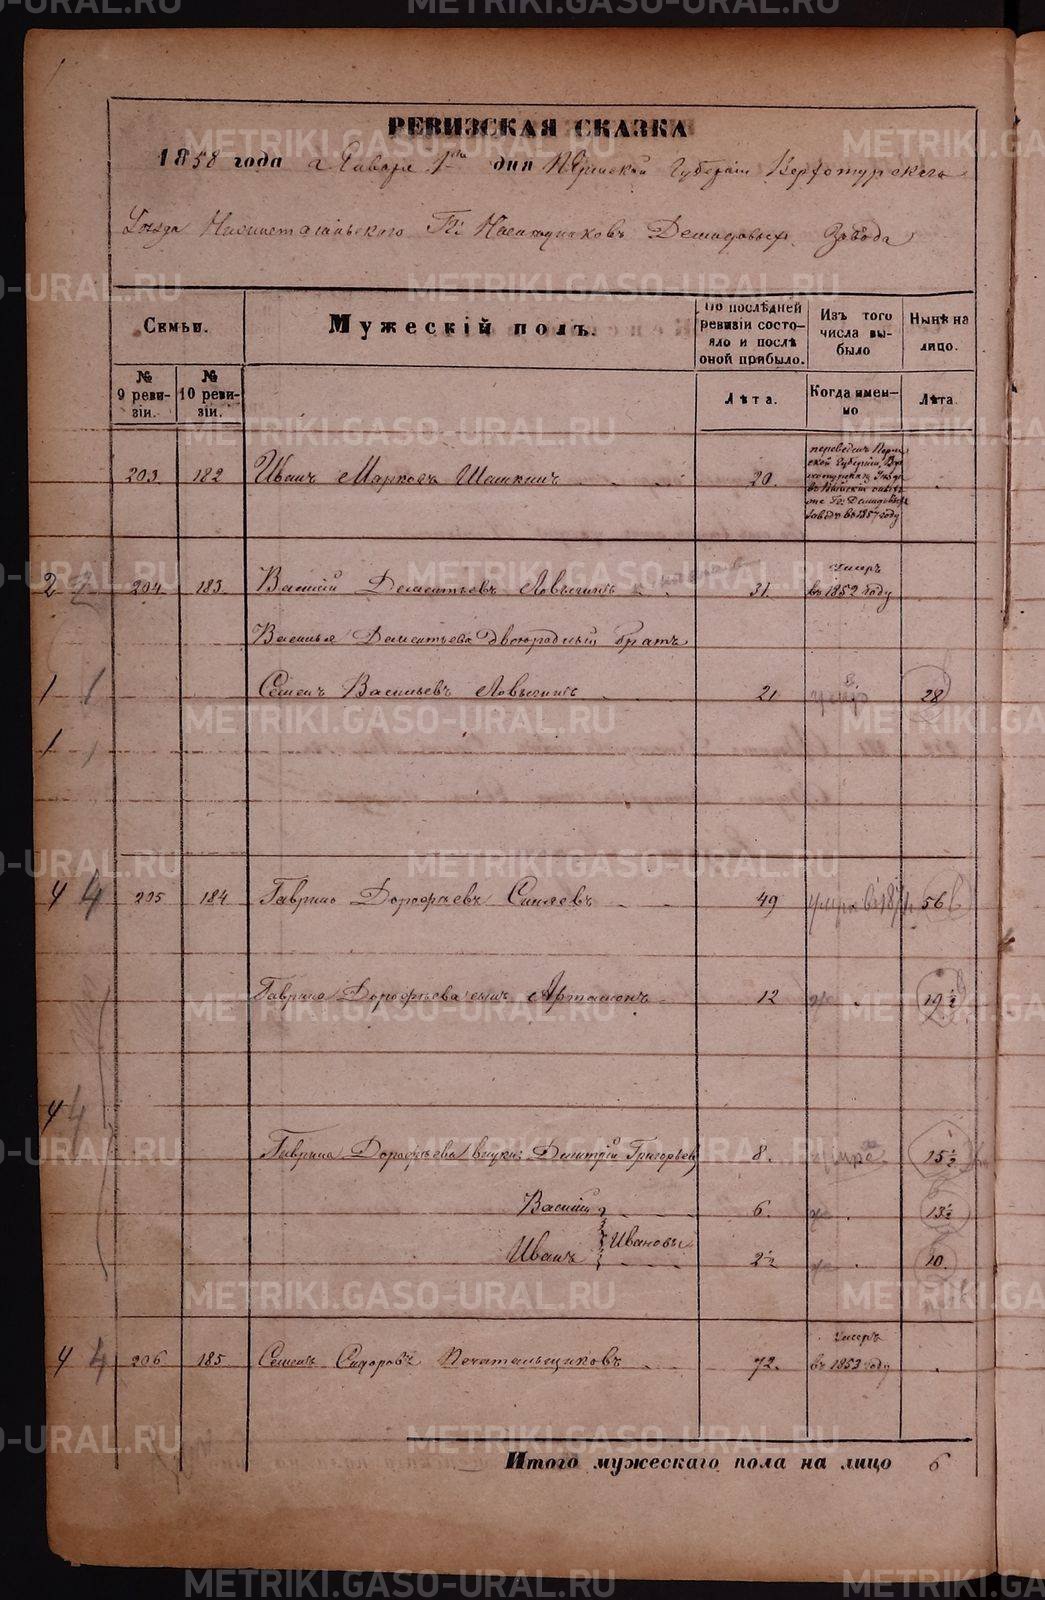 РЕВИЗСКАЯ СКАЗКА
1858 года Января 1го дня Пермской Губерніи Верхотурскаго
Уѣзда Нижнетагильскаго Гг: Наслѣдниковъ Демидовыхъ Завода
Семьи.
Мужескій полъ.
По послѣдней ревизіи состояло и послѣ оной прибыло.
Изъ того числа выбыло
Нынѣ на лицо.
№ 9 ревизіи.
№ 10 ревизіи.
Лѣта.
Когда именно
Лѣта
203 182 Иванъ Марковъ 20.
переведенъ Пермской Губерніи, Верхотурскаго Уѣзда въ Гг: Демидовыхъ Заводъ въ 1857 году
2 2 204 183. Василій Дементьевъ Ловыгинъ 31. умеръ въ 1852 году
Василья Дементьева двоюродный братъ
1 1 Семенъ Васильевъ Ловыгинъ 21 28
1 1
4 4 205 184 Гаврило Дорофѣевъ Синяевъ 49 56
Гаврила Дорофѣева сынъ Артамонъ 12 19½
4 4
Гаврила Дорофѣева внуки: Дмитрій Григорьевъ 8. 15½
Василій 6. 13½
Иванъ Ивановы 2½ 10.
4 4 206 185 Семенъ Сидоровъ Печатальщиковъ 72. умеръ въ 1853 году
Итого мужескаго пола на лицо 6
METRIKI.GASO-URAL.RU